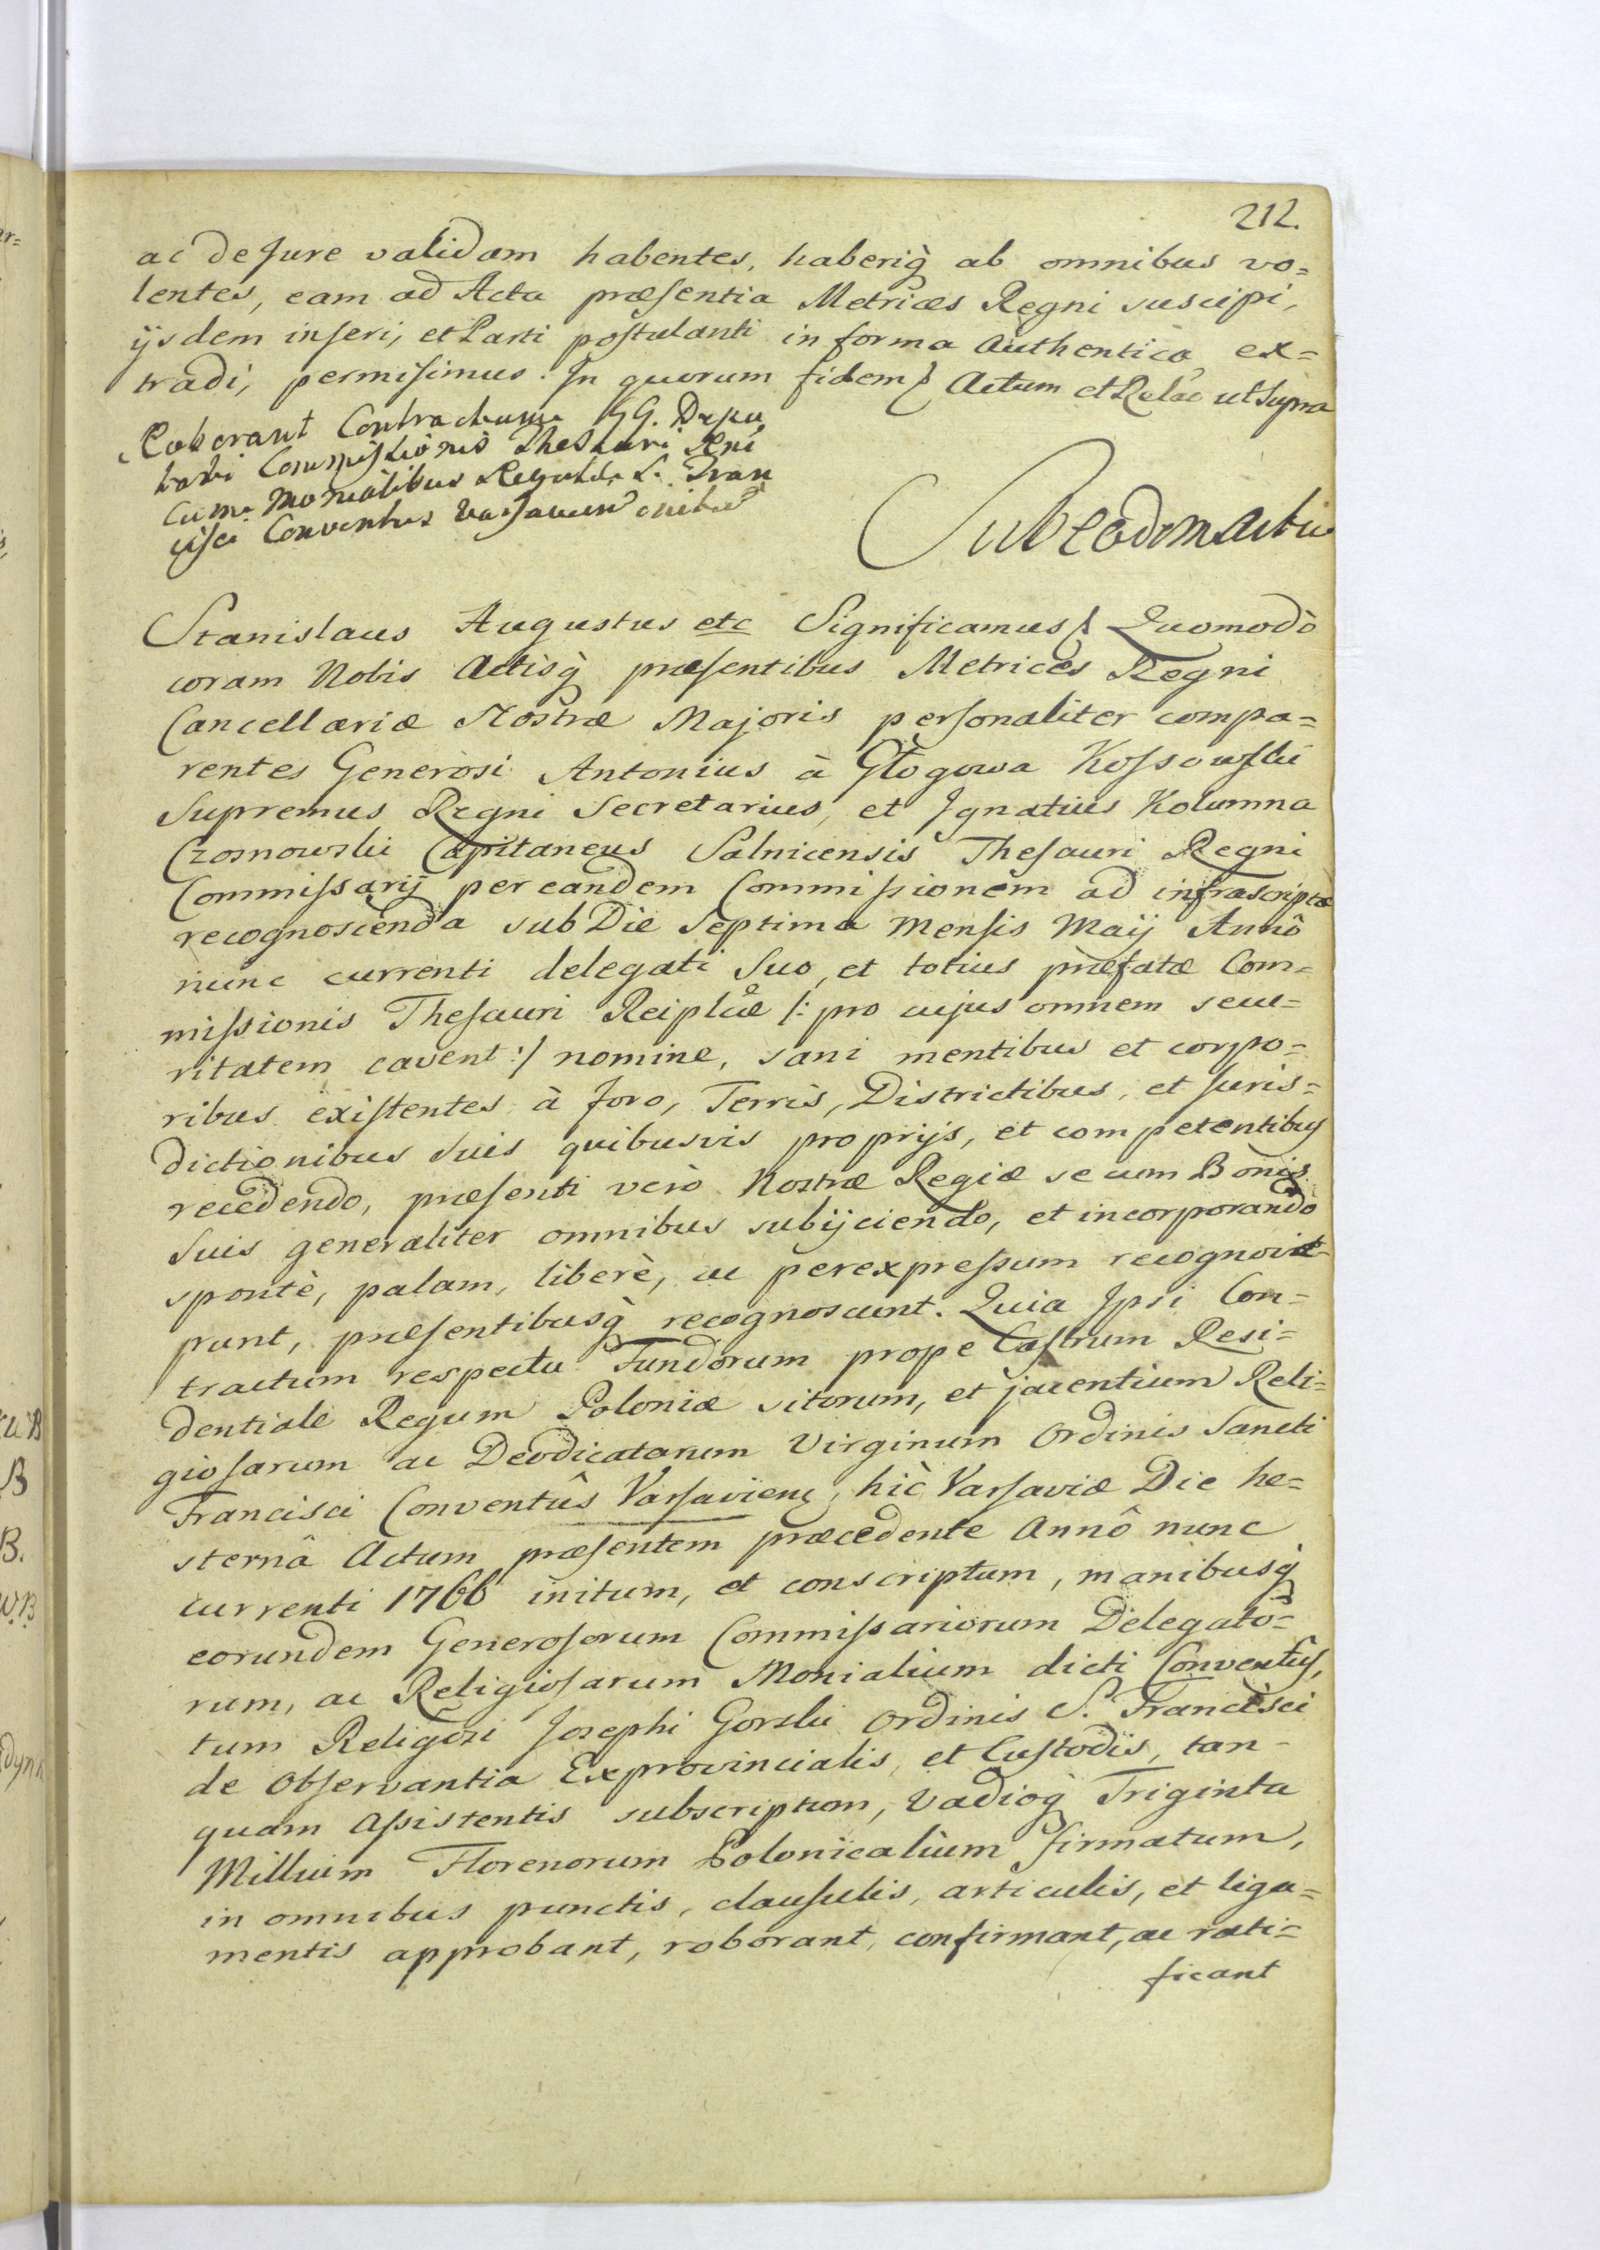 212.
ac de Jure validam habentes, haberiq̀ ab omnibus vo=
lentes, eam ad Acta præsentia Metrices Regni suscipi,
ijsdem inseri, et Parti postulanti in forma Authentica ex=
tradi, permisimus. In quorum fidem Actum et Relac ut supra
Roborant Contractum GG. Depu
tati Commissionis Thesauri Rni
cum Monialibus Regulæ S. Fran
cisci Conventus Varsavien initum
Sub eodem Actu
Stanislaus Augustus etc Significamus Quomodò
coram Nobis Actisq̀ præsentibus Metrices Regni
Cancellariæ Nostræ Majoris personaliter compa=
rentes Generosi Antonius à Głogowa Kossowski
Supremus Regni Secretarius, et Ignatius Kolumna
Czosnowski Capitaneus Salnicensis Thesauri Regni
Commissarij per eandem Commissionem ad infrascripta
recognoscenda sub Die Septima Mensis Maij Annô
nunc currenti delegati Suo, et totius præfatæ Com=
missionis Thesauri Reiplicæ /: pro cujus omnem secu=
ritatem cavent :/ nomine, sani mentibus et corpo=
ribus existentes à foro, Terris, Districtibus, et Juris=
dictionibus suis quibusvis proprijs, et competentibus
recedendo, præsenti verò Nostræ Regiæ se cum Bonis
suis generaliter omnibus subijciendo, et incorporando
spontè, palam, liberè, ac per expressum recognove=
runt, præsentibusq̀ recognoscunt. Quia Ipsi Con=
tractum respectu Fundorum prope Castrum Resi=
dentiale Regum Poloniæ sitorum, et jacentium Reli=
giosarum ac Deodicatarum Virginum Ordinis Sancti
Francisci Conventûs Varsavieng, hic Varsaviæ Die he=
sternâ Actum præsentem præcedente Annô nunc
currenti 1766 initum, et conscriptum, manibusq̀
eorundem Generosorum Commissariorum Delegato=
rum, ac Religiosarum Monialium dicti Conventûs,
tum Religiosi Josephi Gorski Ordinis S. Francisci
de Observantia Exprovincialis, et Custodis, tan-
quam Assistentis subscriptum, Vadioq̀ Triginta
Millium Florenorum Polonicalium firmatum,
in omnibus punctis, clausulis, articulis, et liga=
mentis approbant, roborant, confirmant, ac rati=
ficant